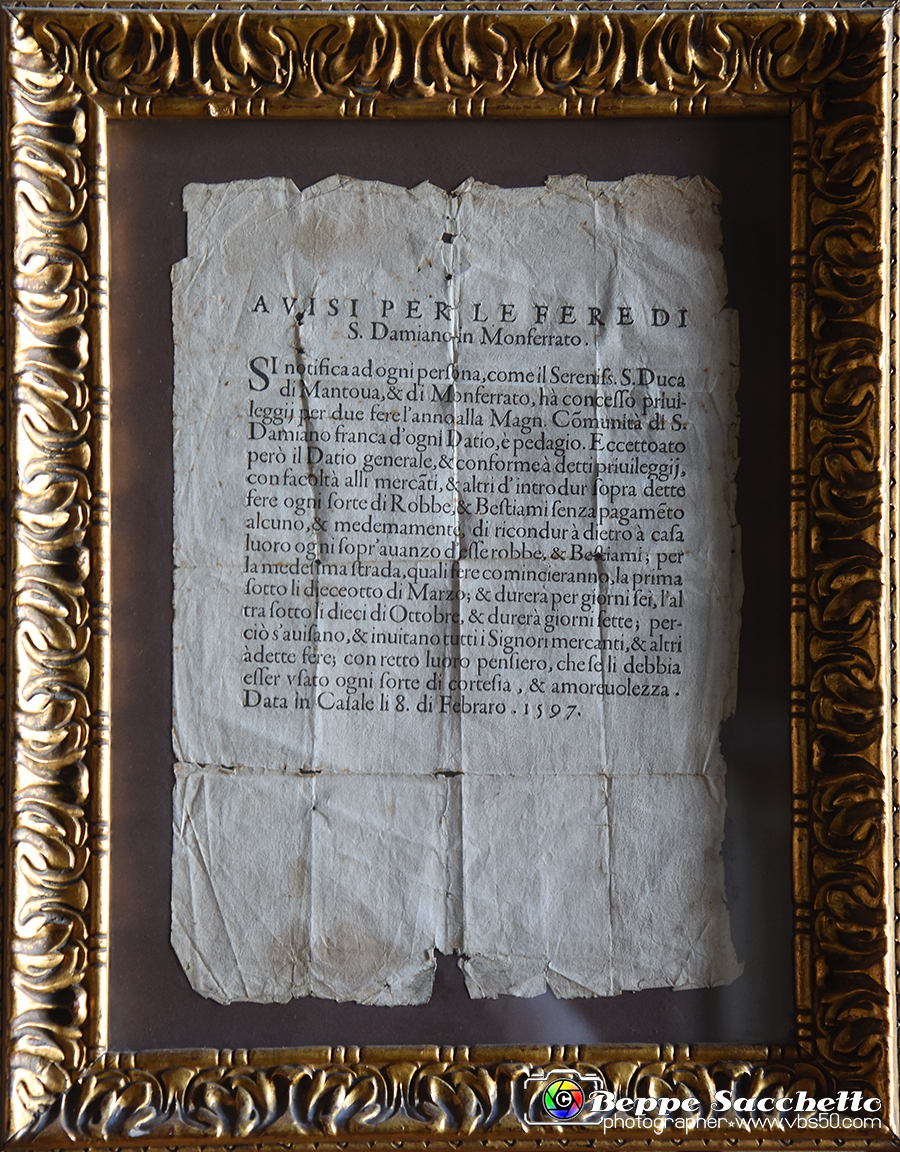 AVISI PER LE FERE DI
S. Damiano in Monferrato.
SI notifica ad ogni perſona, come il Sereniſs. S. Duca
di Mantoua, & di Monferrato, hà conceſſo priui-
leggij per due fere l'anno alla Magn. Cōmunità di S.
Damiano franca d'ogni Datio, e pedagio. Eccettoato
però il Datio generale, & conforme à detti priuileggij,
con facoltà alli mercāti, & altri d'introdur ſopra dette
fere ogni ſorte di Robbe, & Beſtiami ſenza pagamēto
alcuno, & medemamente, di ricondur à dietro à caſa
luoro ogni ſopr'auanzo d'eſſe robbe, & Beſtiami; per
la medeſima ſtrada, quali fere comincieranno, la prima
ſotto li dieceotto di Marzo; & durerà per giorni ſei, l'al
tra ſotto li dieci di Ottobre, & durerà giorni ſette; per-
ciò s'auiſano, & inuitano tutti i Signori mercanti, & altri
à dette fere; con retto luoro penſiero, che ſe li debbia
eſſer vſato ogni ſorte di corteſia, & amoreuolezza.
Data in Caſale li 8. di Febraro. 1597.
© Beppe Sacchetto
photographer★www.vbs50.com